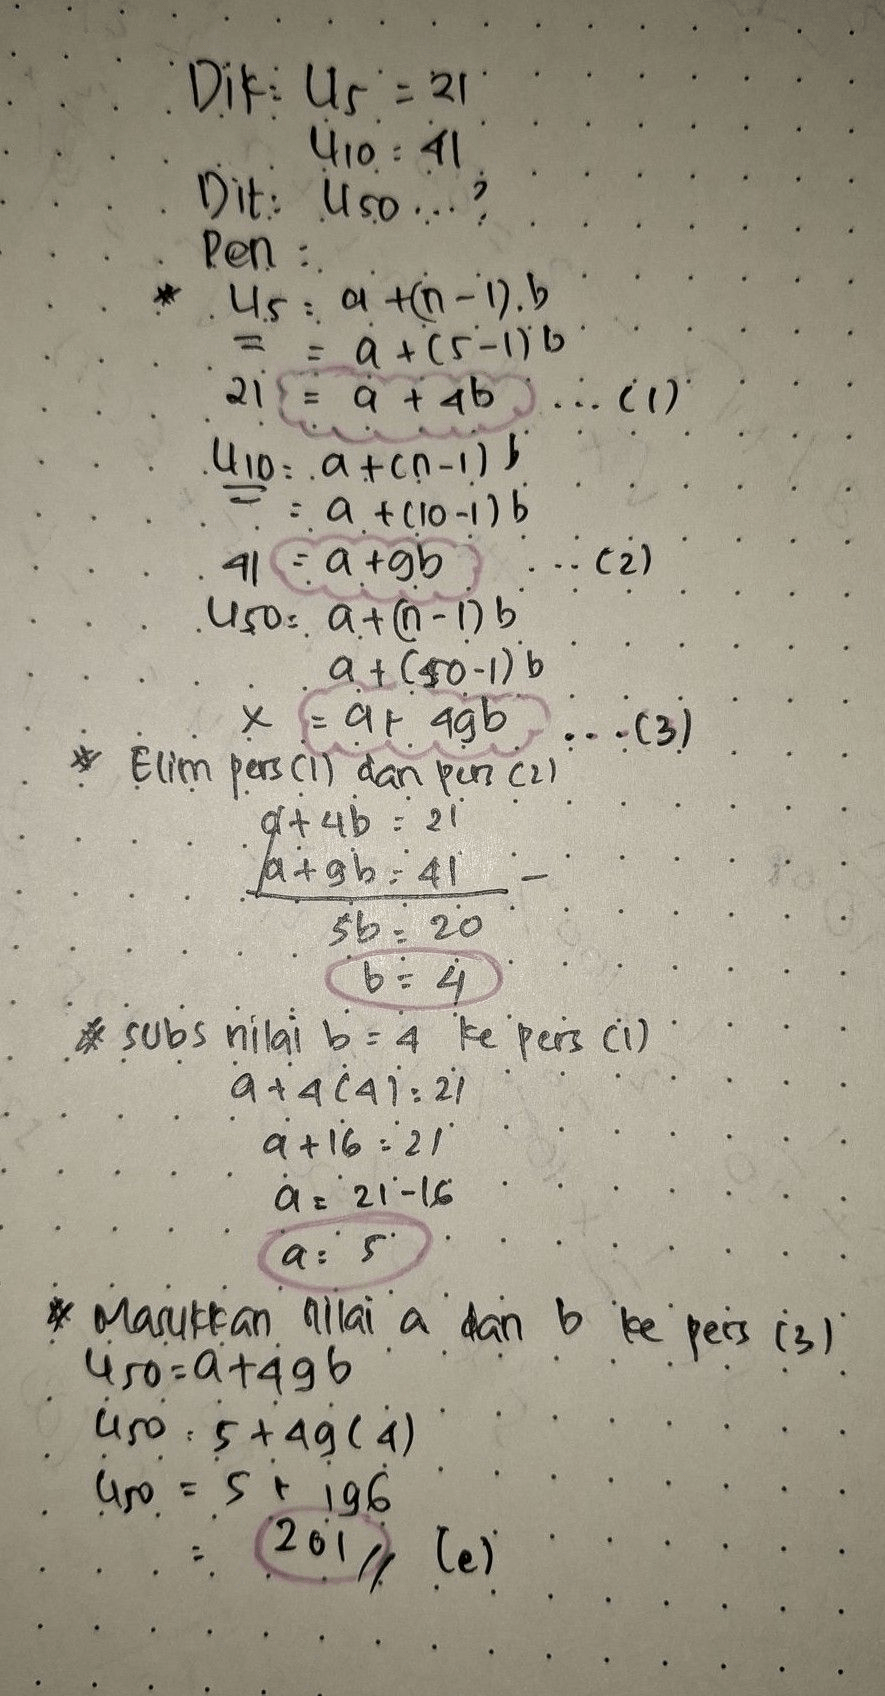 Dik: U5 = 21
U10 = 41
Dit: U50 ...?
Pen :
* U5 = a + (n - 1).b
= = a + (5-1) b
21 = a + 4b ... (1)
U10 = a + (n-1) b
= = a + (10-1) b
41 = a + 9b ... (2)
U50 = a + (n-1) b
a + (50-1) b
x = a + 49b ... (3)
* Elim pers (1) dan pers (2)
a + 4b = 21
a + 9b = 41 -
5b = 20
b = 4
* subs nilai b = 4 ke pers (1)
a + 4(4) = 21
a + 16 = 21
a = 21-16
a = 5
* Masukkan nilai a dan b ke pers (3)
U50 = a + 49b
U50 = 5 + 49(4)
U50 = 5 + 196
= 201 // (e)